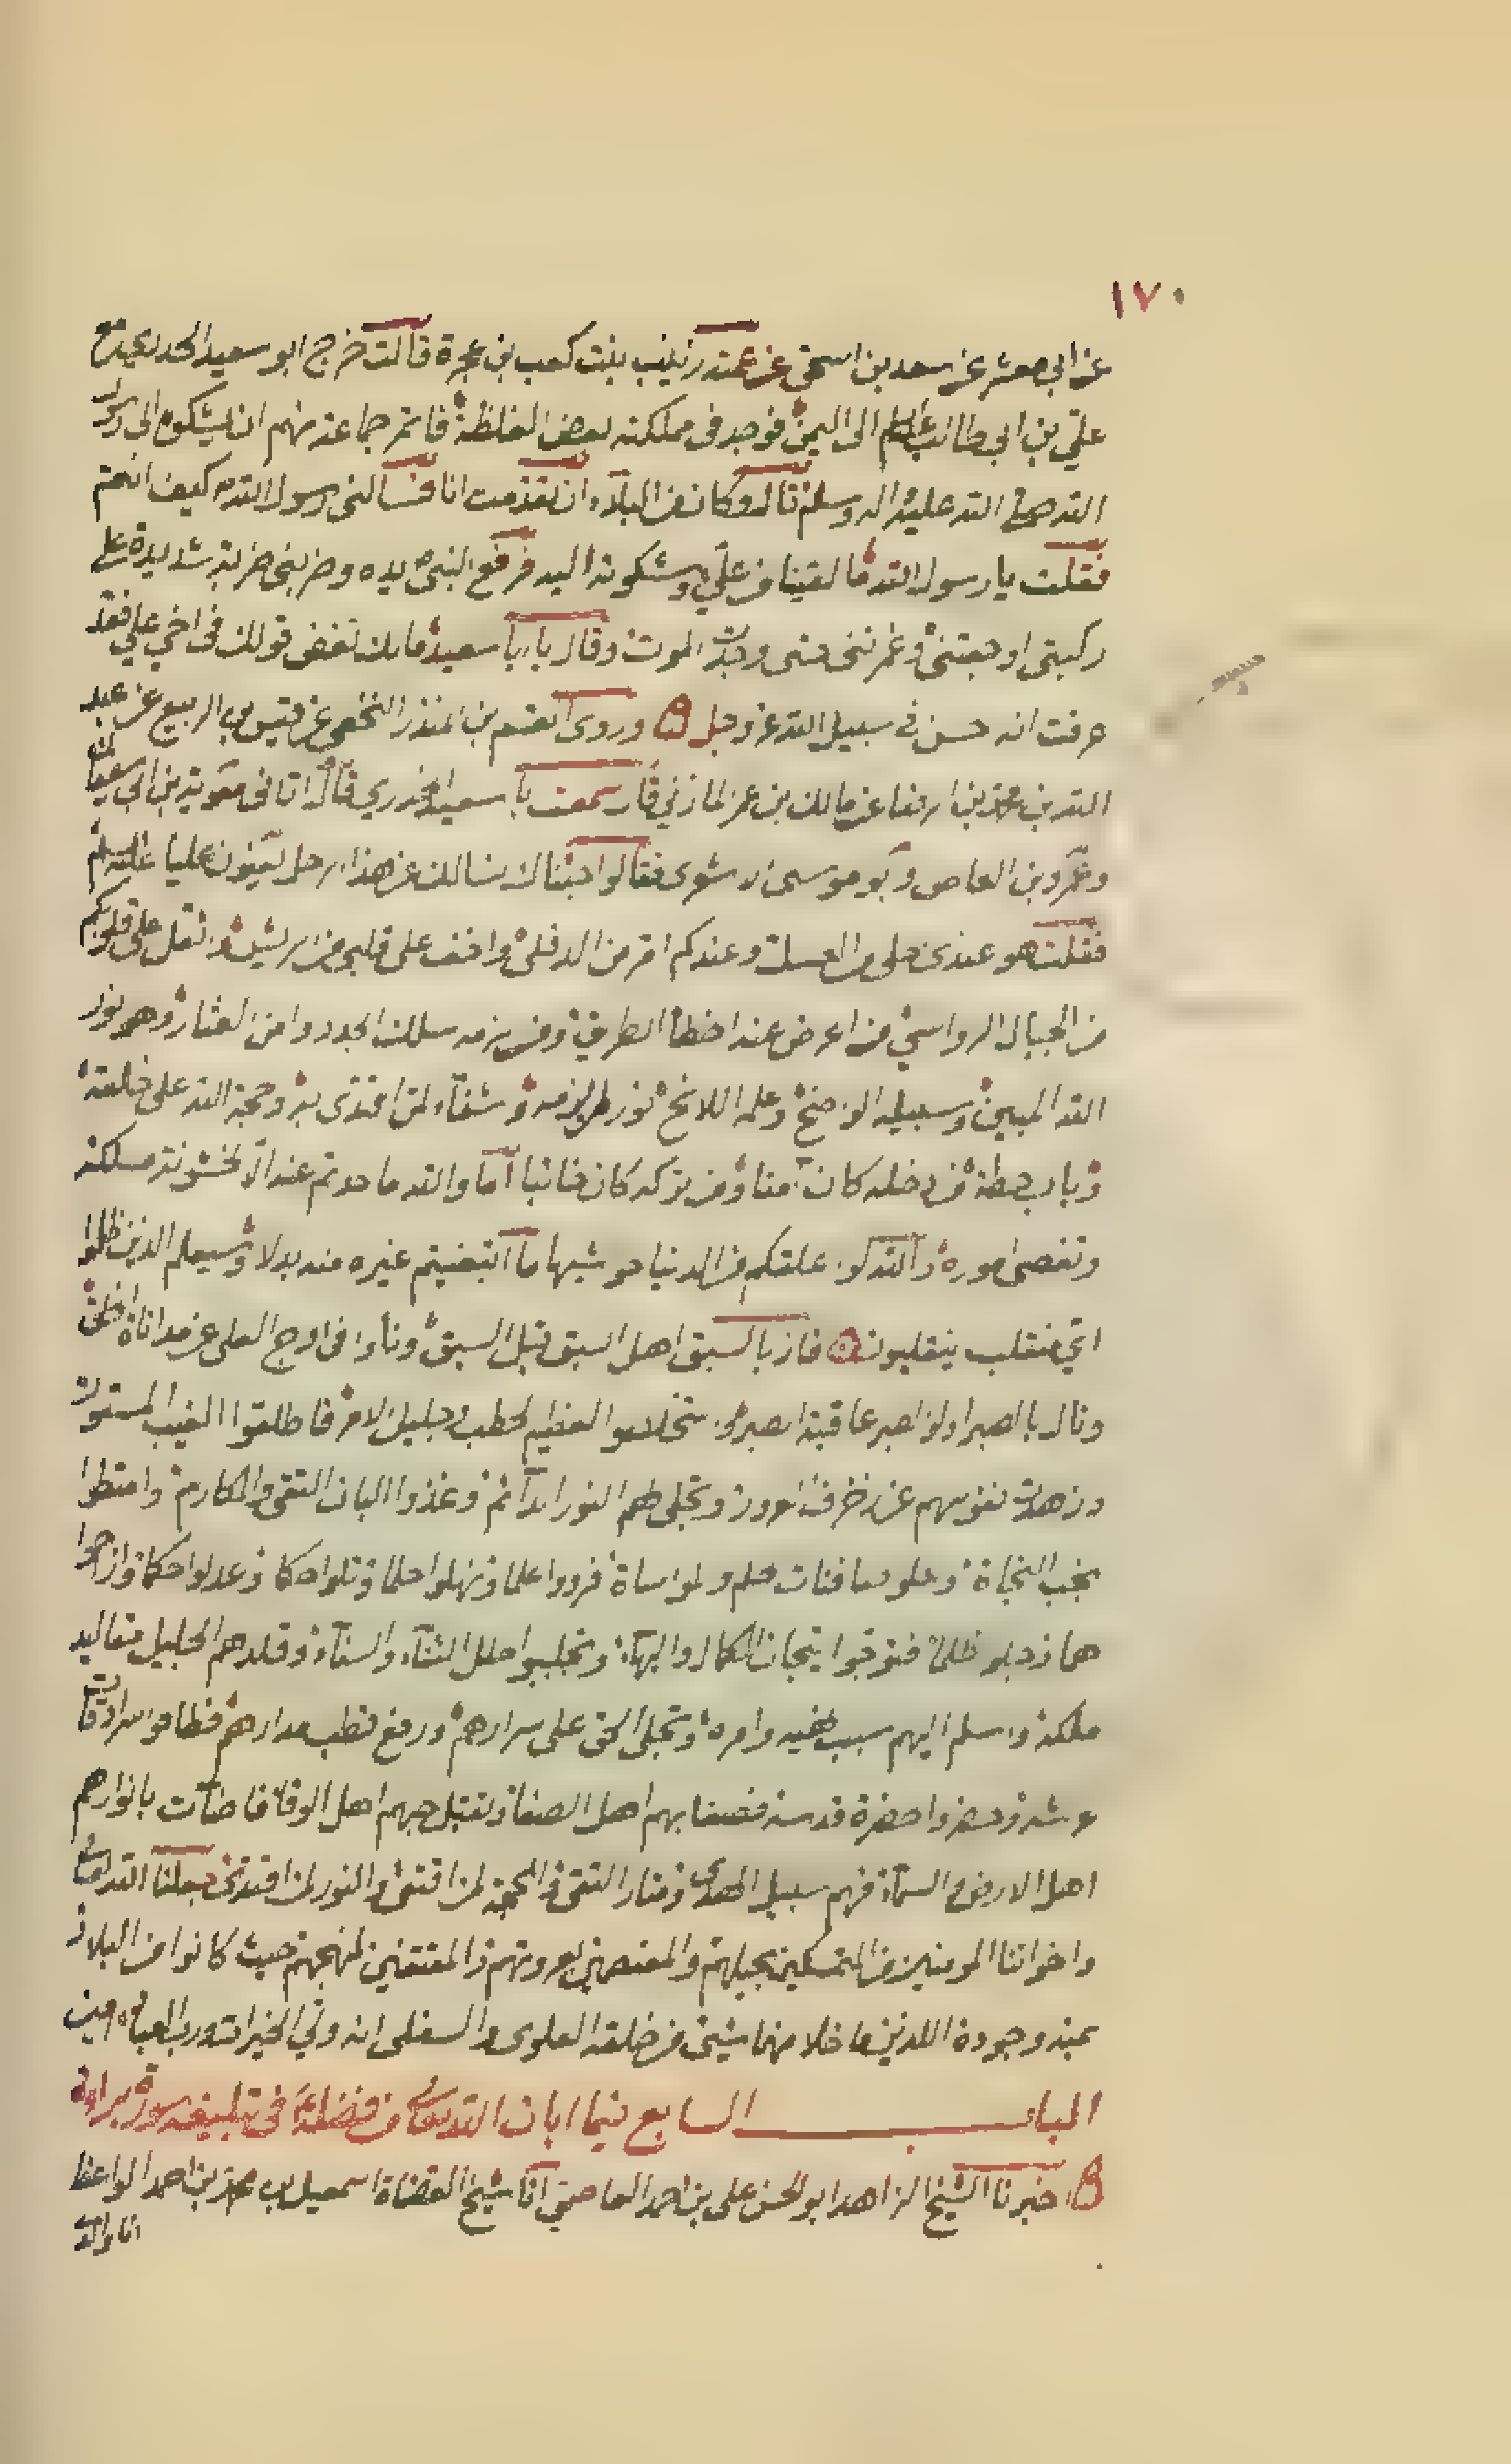 ١٧٠
عن ابي معشر عن سعد بن اسحق عن عمته زينب بنت كعب بن عجرة قالت خرج ابو سعيد الخدري مع
علي بن ابي طالب الى اليمن فوجد في مملكته بعض الغلظة فاتمر جماعة منهم ان يشكوه الى رسول
الله صلى الله عليه واله وسلم قال وكان من البلاء ان تقدمت انا فسالني رسول الله كيف انتم
فقلت يا رسول الله ما لقينا من علي وشكوته اليه فرفع النبي يده وضربني ضربة شديدة على
ركبتي اوجعتني وغمزتني حتى وجدت الموت وقال يا با سعيد مالك بعض قولك في اخي علي فقد
عرفت انه حسن في سبيل الله عز وجل وروى القسم بن المنذر النخعي عن قيس بن الربيع عن عبد
الله بن محمد بن عن مالك بن المازني قال سمعت با سعيد الخدري قال اتاني معوية بن ابي سفيان
وعمرو بن العاص وبو موسى الاشعري فقالوا جئناك نسالك عن هذا الرجل يعنون عليا عليه السلم
فقلت هو عندي احلى من العسل وعندكم امر من الدفلى واخف على قلبي من الريش واثقل على قلوبكم
من الجبال الرواسي من اعرض عنه اخطأ الطريق ومن لزمه سلك الجدد وامن العثار وهو نور
الله المبين وسبيله الواضح وعلمه اللائح نور لمن لازمه وشفاء لمن اقتدى به وحجة الله على خلقه
وباب حطة من دخله كان آمنا ومن تركه كان خائبا أما والله ما حدتم عنه الا لخشونة مسلكه
وتقصي اموره والله لو علقكم من الدنيا حواشيها ما ابتغيتم غيره منه بدلا وسيعلم الذين ظلموا
اي منقلب ينقلبون فاز بالسبق اهل السبق قبل السبق ونأوا في اوج العلى عن مداناة الخلق
ونال بالصبر اولو الصبر عاقبة الصبر العظيم الخطب وجليل الامر فاطلعوا الغيب المستور
وزهدت نفوسهم عن زخرف الغرور وتجلى لهم النور الدائم وغذوا البان التقى والمكارم وامتطوا
نجب النجاة وعلوا حلم ومواساة فرووا علما ونهلوا حلما وتلوا حكما وعدلوا حكما وازاحوا
هما وجلوا ظلما فتوجوا تيجان الكمال والبهاء وتجلببوا حلل الثناء والسناء وقلدهم الجليل مقاليد
ملكه واسلم اليهم سبب نهيه وامره وتجلى الحق على سرارهم ورفع قطب مدارهم فطافوا سرادقات
عرشه وحضروا حضرة قدسه فصفا بهم اهل الصفا وتقبل حبهم اهل الوفا فاضأت بانوارهم
اهل الارض والسماء فهم سبيل الهدى ومنار التقى والحجة لمن اقتفى والنور لمن اقتدى جعلنا الله تعالى
واخواننا المومنين من المتمسكين بحبلهم والمعتصمين بعروتهم والمقتفين لمنهجهم حيث كانوا من البلاد
بمنه وجوده اللذين ما خلا منهما شيئ من خلقه العلوي والسفلي انه ولي الخيرات ورب العباد امين
الباب السابع فيما ابان الله تعالى من فضله في تبليغه سورة براءة
اخبرنا الشيخ الزاهد ابو الحسن علي بن احمد العاصمي انا شيخ القضاة اسمعيل بن احمد الواعظ
انا والدي